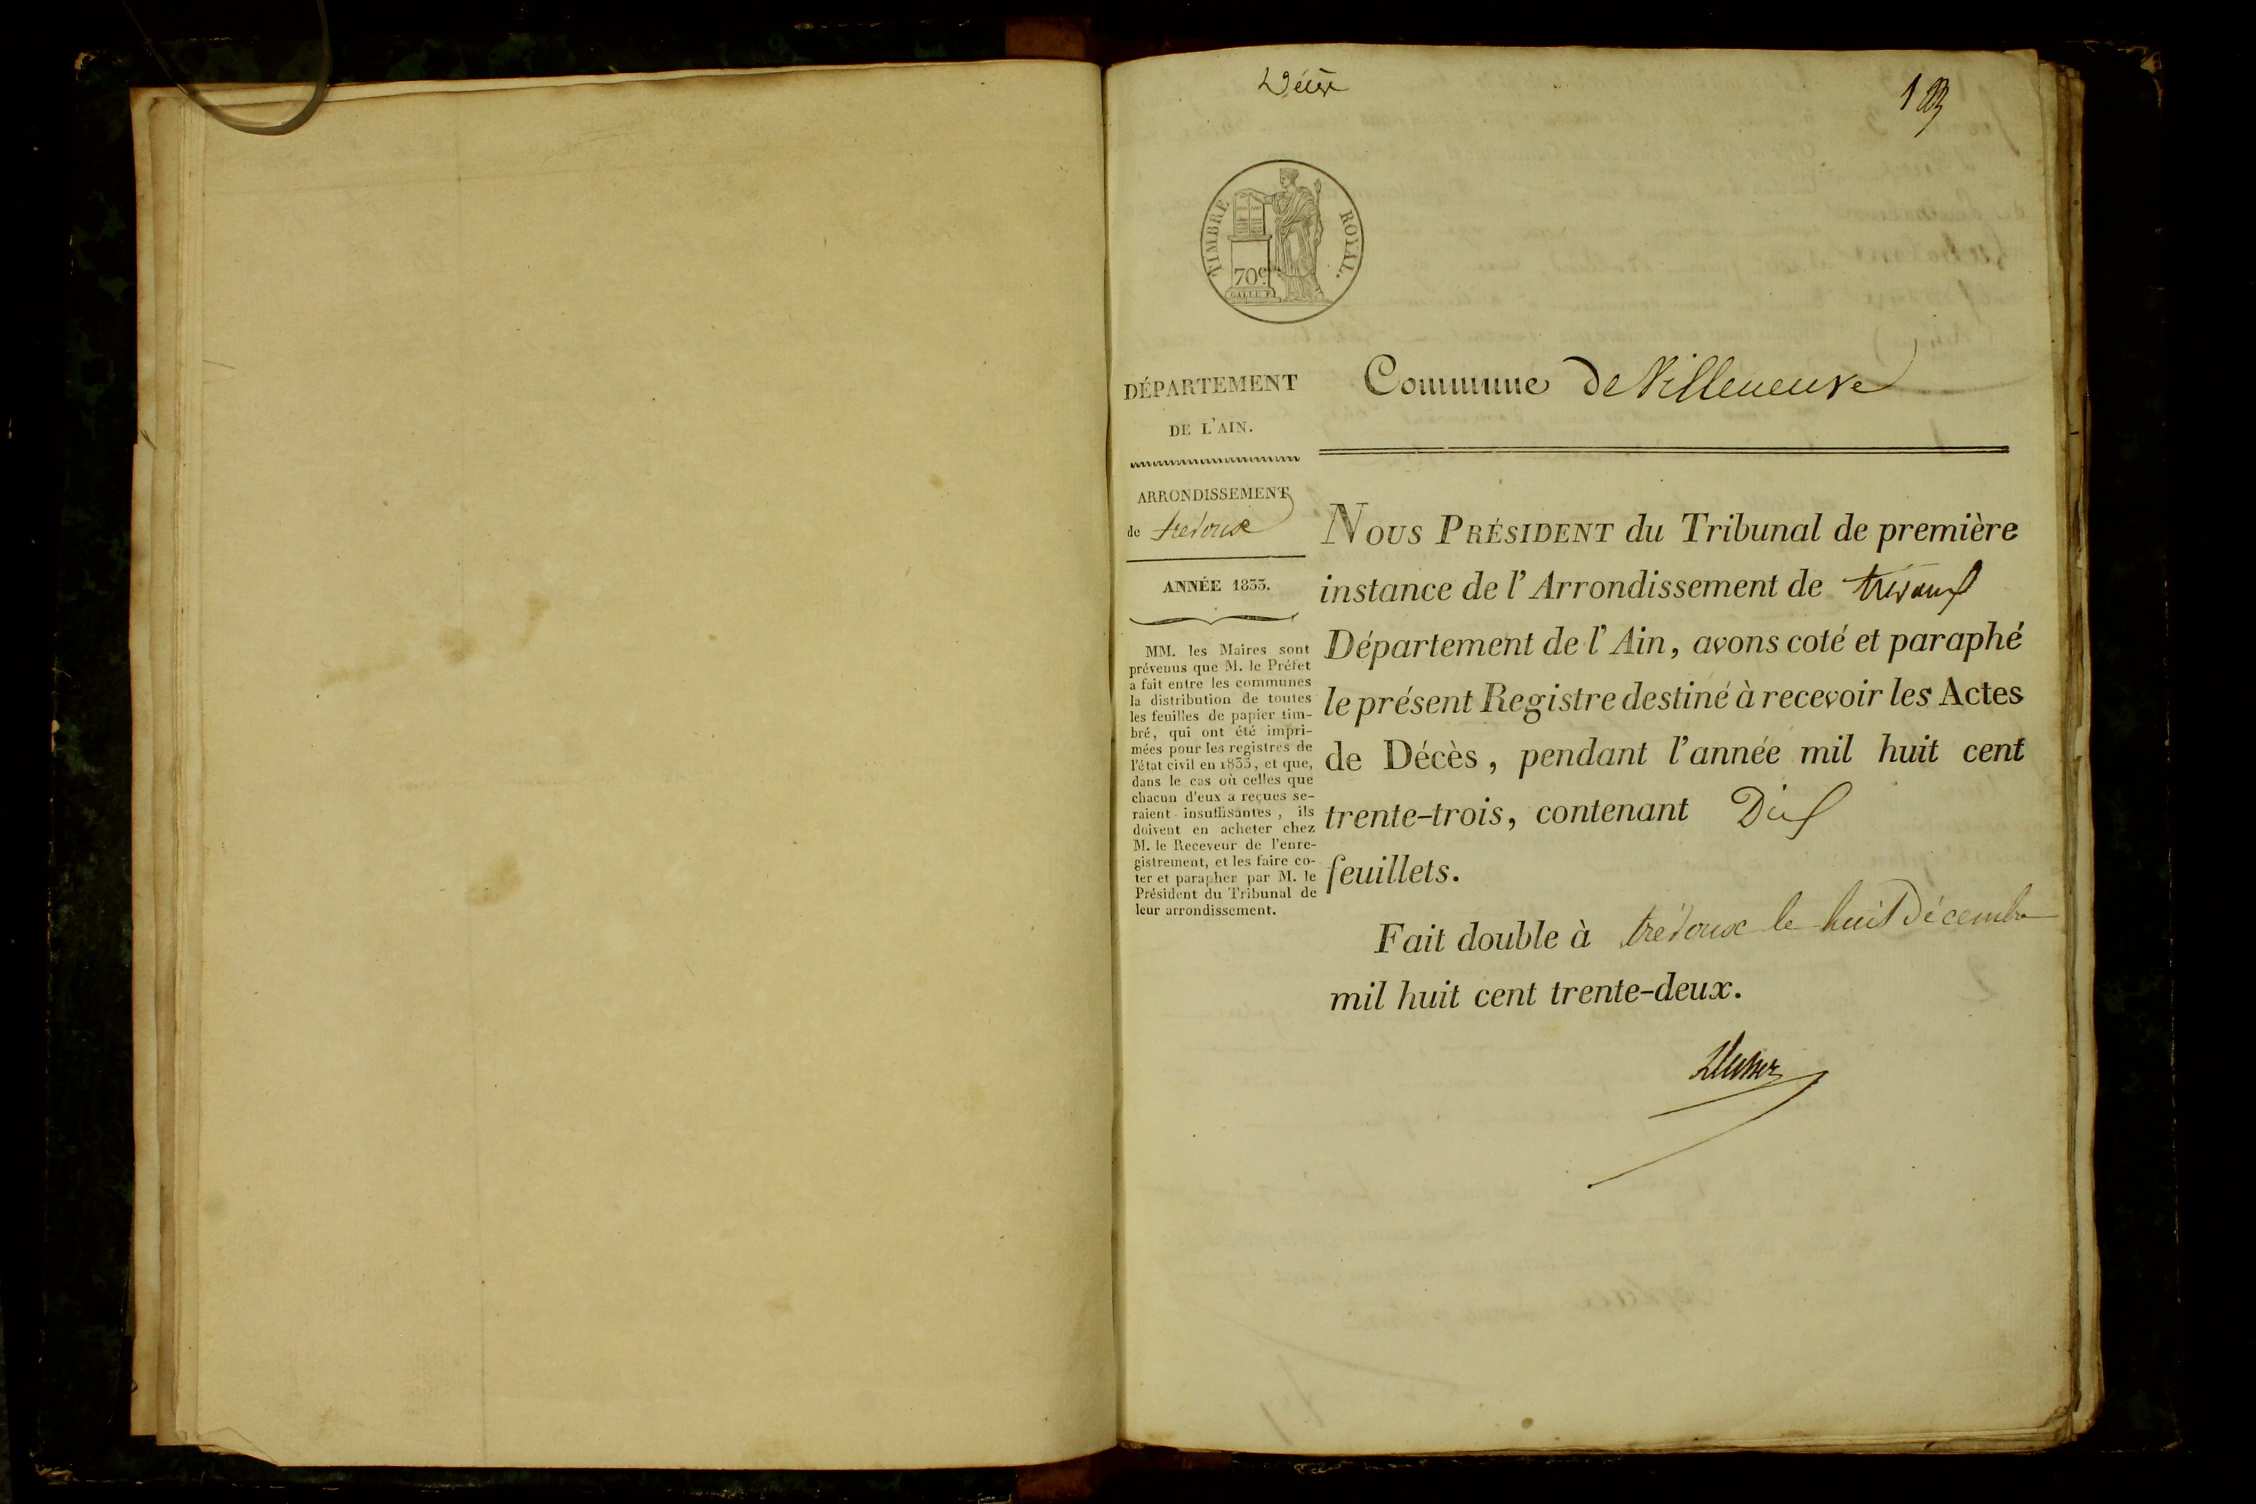 Décès
TIMBRE ROYAL.
70 c.
DÉPARTEMENT
DE L'AIN.
ARRONDISSEMENT
de trévoux
ANNÉE 1833.
MM. les Maires sont
prévenus que M. le Préfet
a fait entre les communes
la distribution de toutes
les feuilles de papier tim-
bré, qui ont été impri-
mées pour les registres de
l'état civil en 1833, et que,
dans le cas où celles que
chacun d'eux a reçues se-
raient insuffisantes, ils
doivent en acheter chez
M. le Receveur de l'enre-
gistrement, et les faire co-
ter et parapher par M. le
Président du Tribunal de
leur arrondissement.
Commune de Villeneuve
NOUS PRÉSIDENT du Tribunal de première
instance de l'Arrondissement de trévoux
Département de l'Ain, avons coté et paraphé
le présent Registre destiné à recevoir les Actes
de Décès, pendant l'année mil huit cent
trente-trois, contenant Dix
feuillets.
Fait double à trévoux le huit Décembre
mil huit cent trente-deux.